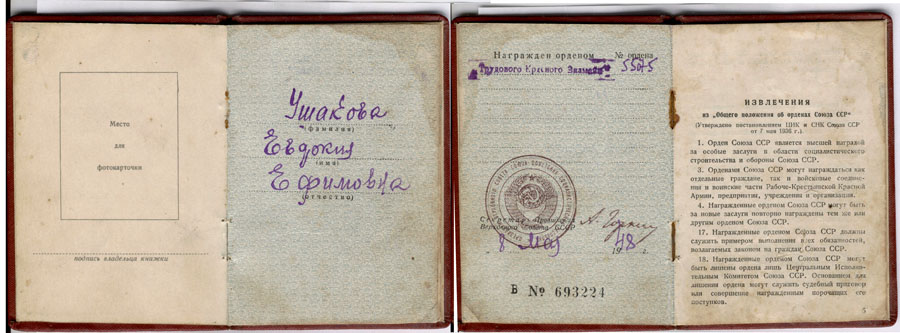 Место
для
фотокарточки
подпись владельца книжки
Ушакова
(фамилия)
Евдокия
(имя)
Ефимовна
(отчество)
Награжден орденом № ордена
"Трудового Красного Знамени"
Секретарь Президиума
Верховного Совета СССР
А. Горкин
8 Мая 1948 г.
В № 693224
ИЗВЛЕЧЕНИЯ
из „Общего положения об орденах Союза ССР“
(Утверждено постановлением ЦИК и СНК Союза ССР
от 7 мая 1936 г.).
1. Орден Союза ССР является высшей наградой
за особые заслуги в области социалистического
строительства и обороны Союза ССР.
3. Орденами Союза ССР могут награждаться как
отдельные граждане, так и войсковые соединения
и воинские части Рабоче-Крестьянской Красной
Армии, предприятия, учреждения и организации.
4. Награжденные орденом Союза ССР могут быть
за новые заслуги повторно награждены тем же или
другим орденом Союза ССР.
17. Награжденные орденом Союза ССР должны
служить примером выполнения всех обязанностей,
возлагаемых законом на граждан Союза ССР.
18. Награжденные орденом Союза ССР могут
быть лишены ордена лишь Центральным Исполни-
тельным Комитетом Союза ССР. Основанием для
лишения ордена могут служить судебный приговор
или совершение награжденным порочащих его
поступков.
5